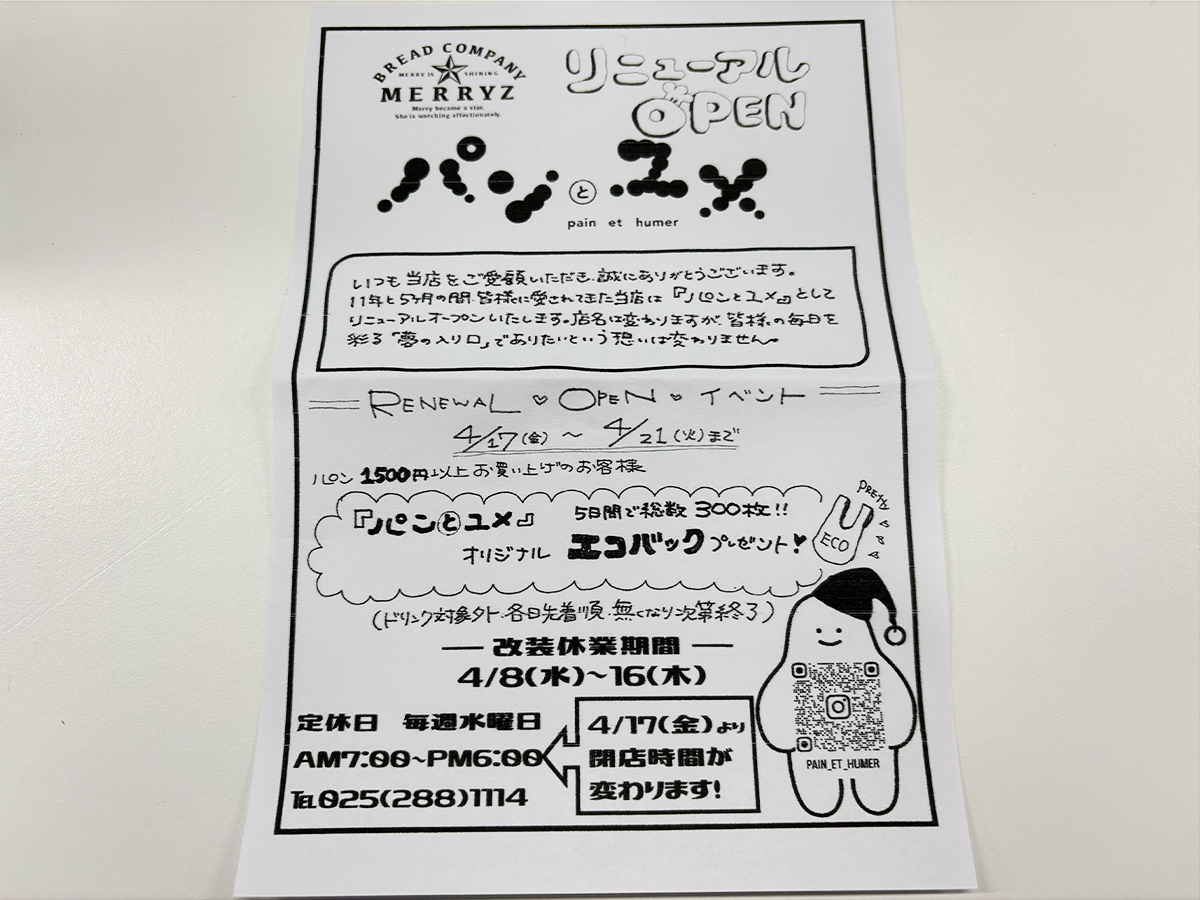 BREAD COMPANY
MERRY IS SHINING
MERRYZ
Merry became a star.
She is watching affectionately.
リニューアル
OPEN
パンとユメ
pain et humer
いつも当店をご愛顧いただき、誠にありがとうございます。
11年と5ヶ月の間、皆様に愛されてきた当店は『パンとユメ』として
リニューアルオープンいたします。店名は変わりますが、皆様の毎日を
彩る「夢の入り口」でありたいという想いは変わりません。
RENEWAL ♡ OPEN ♡ イベント
4/17(金) ~ 4/21(火)まで
パン 1500円以上お買い上げのお客様
『パンとユメ』 5日間で総数 300枚!!
オリジナル エコバック プレゼント!
PRETTY
ECO
(ドリンク対象外・各日先着順・無くなり次第終了)
改装休業期間
4/8(水)~16(木)
定休日 毎週水曜日
AM7:00~PM6:00
TEL025(288)1114
4/17(金)より
閉店時間が
変わります!
PAIN_ET_HUMER